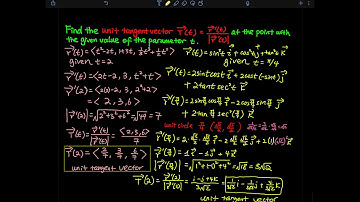 Find the unit tangent vector T(t) = r'(t)/|r'(t)| at the point with
the given value of the parameter t.
r(t) = <t²-2t, 1+3t, ⅓t³+½t²>
given t=2
r'(t) = <2t-2, 3, t²+t>
r'(2) = <2(2)-2, 3, 2²+2>
= <2, 3, 6>
|r'(2)| = √2²+3²+6² = √49 = 7
T(t) = r'(t)/|r'(t)| = <2,3,6>/7
T(2) = <2/7, 3/7, 6/7>
unit tangent vector
r(t) = sin²t i + cos²t j + tan²t k
given t = π/4
r'(t) = 2sintcost i + 2cost(-sint) j
+ 2tant sec²t k
r'(π/4) = 2sin π/4 cos π/4 i - 2cos π/4 sin π/4 j
+ 2tan π/4 sec²(π/4) k
unit circle
r'(π/4) = 1i - 1j + 4k
|r'(π/4)| = √1²+(-1)²+4² = √18 = 3√2
unit tangent vector